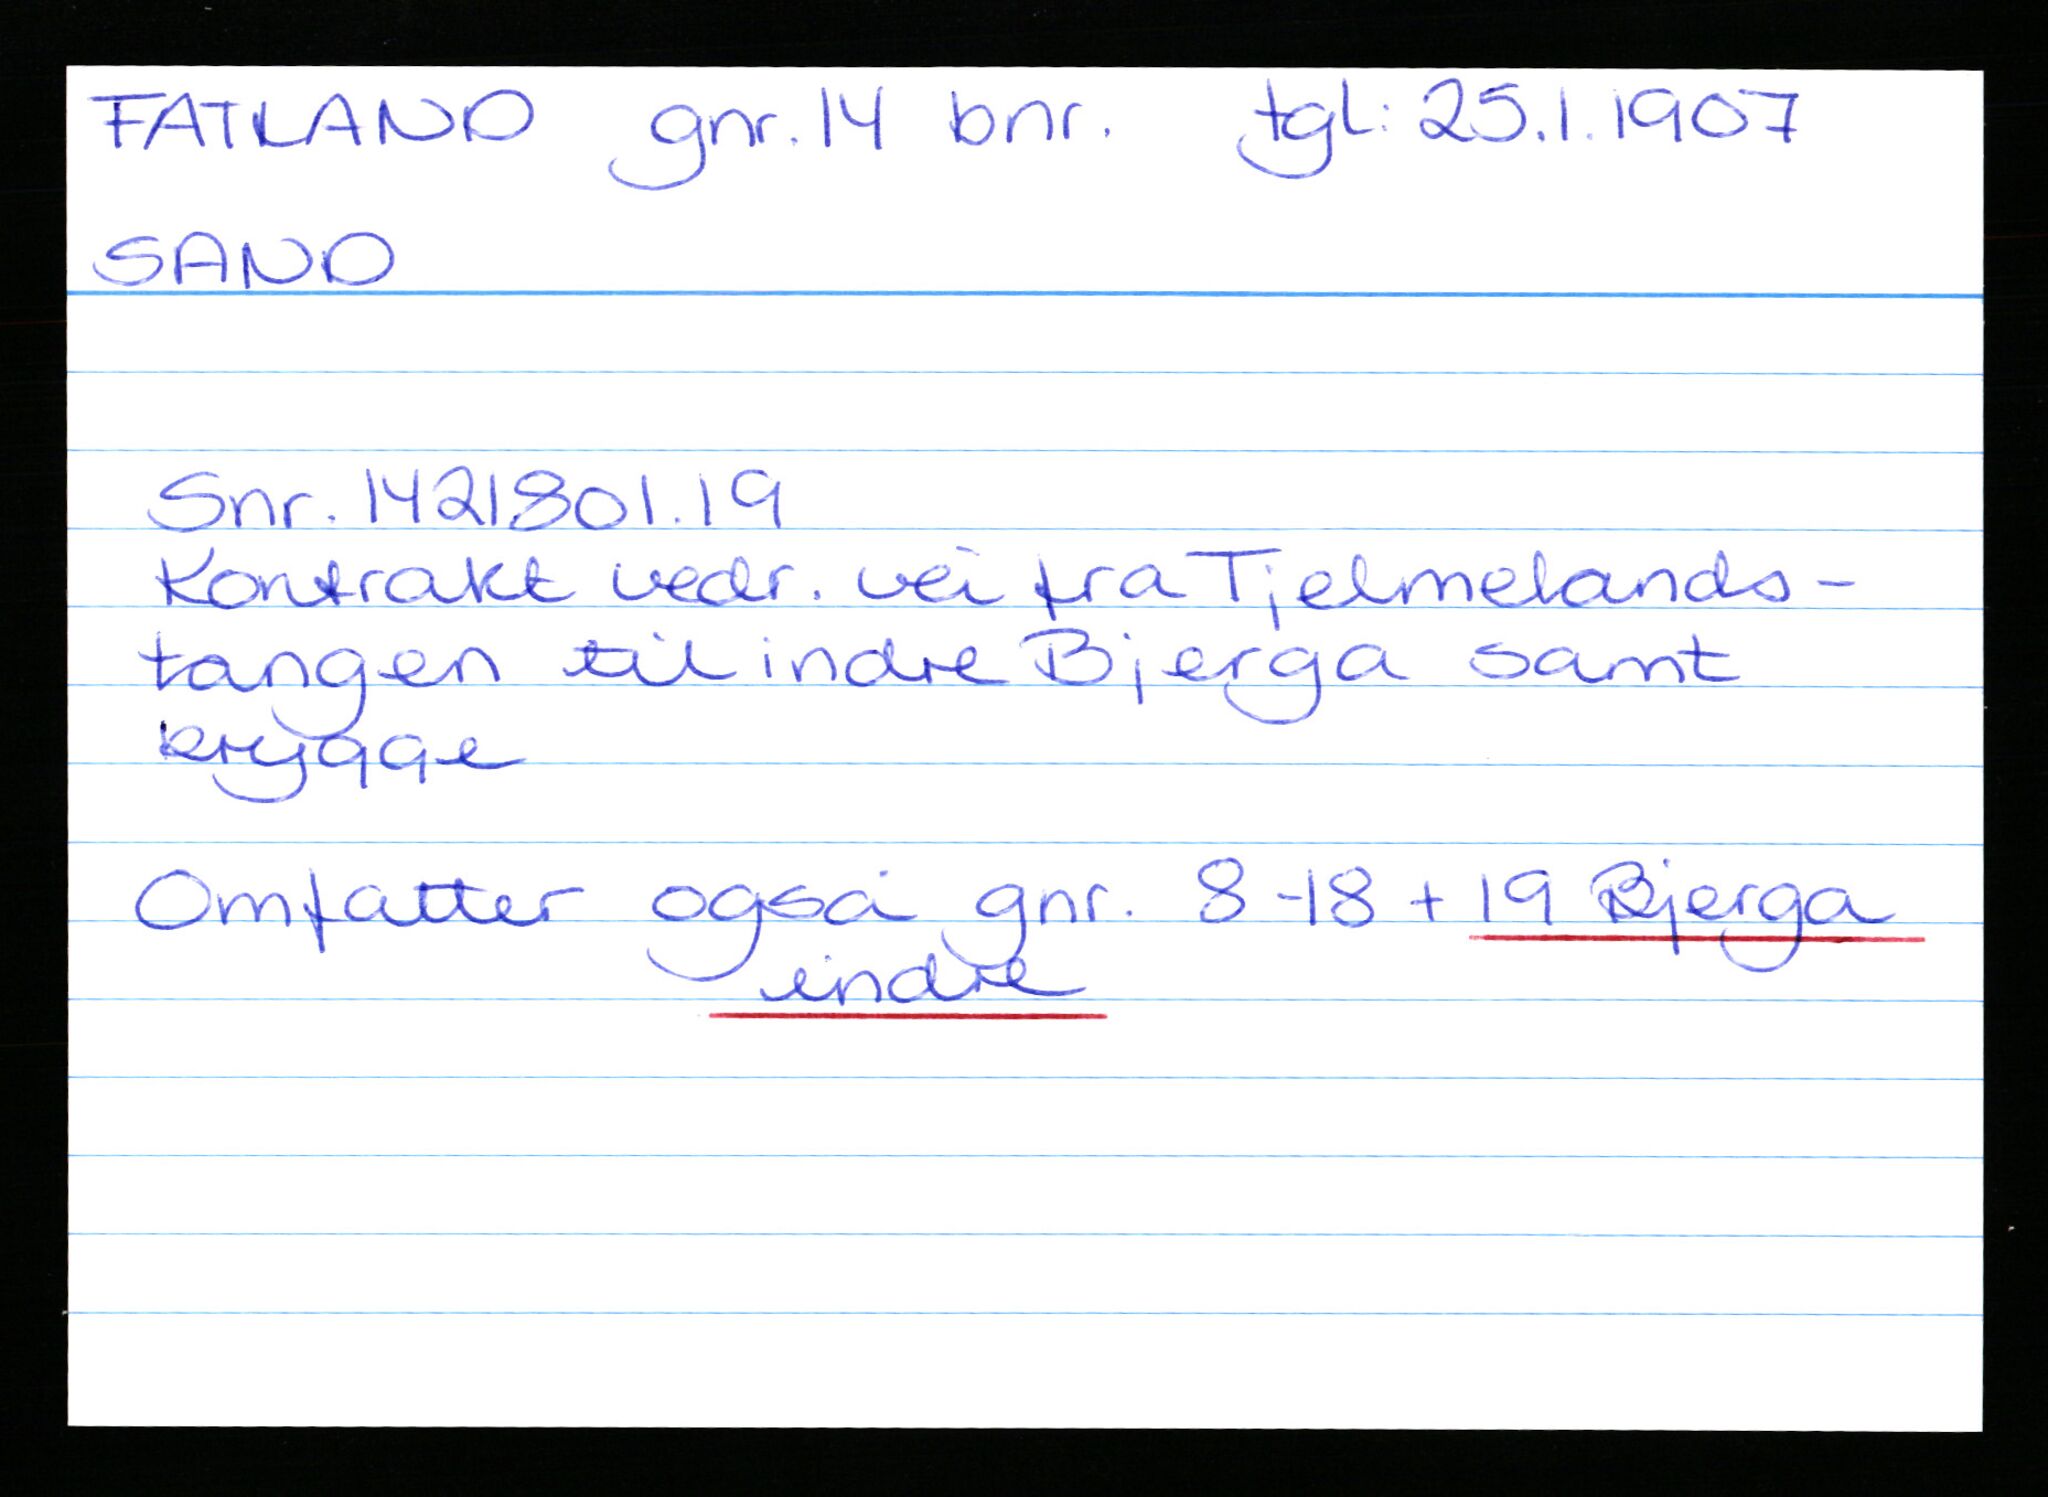 FATLAND gnr. 14 bnr. tgl: 25.1.1907
SAND
Snr. 1421801.19
Kontrakt vedr. vei fra Tjelmelands-
tangen til indre Bjerga samt
brygge
Omfatter også gnr. 8-18 + 19 Bjerga
indre